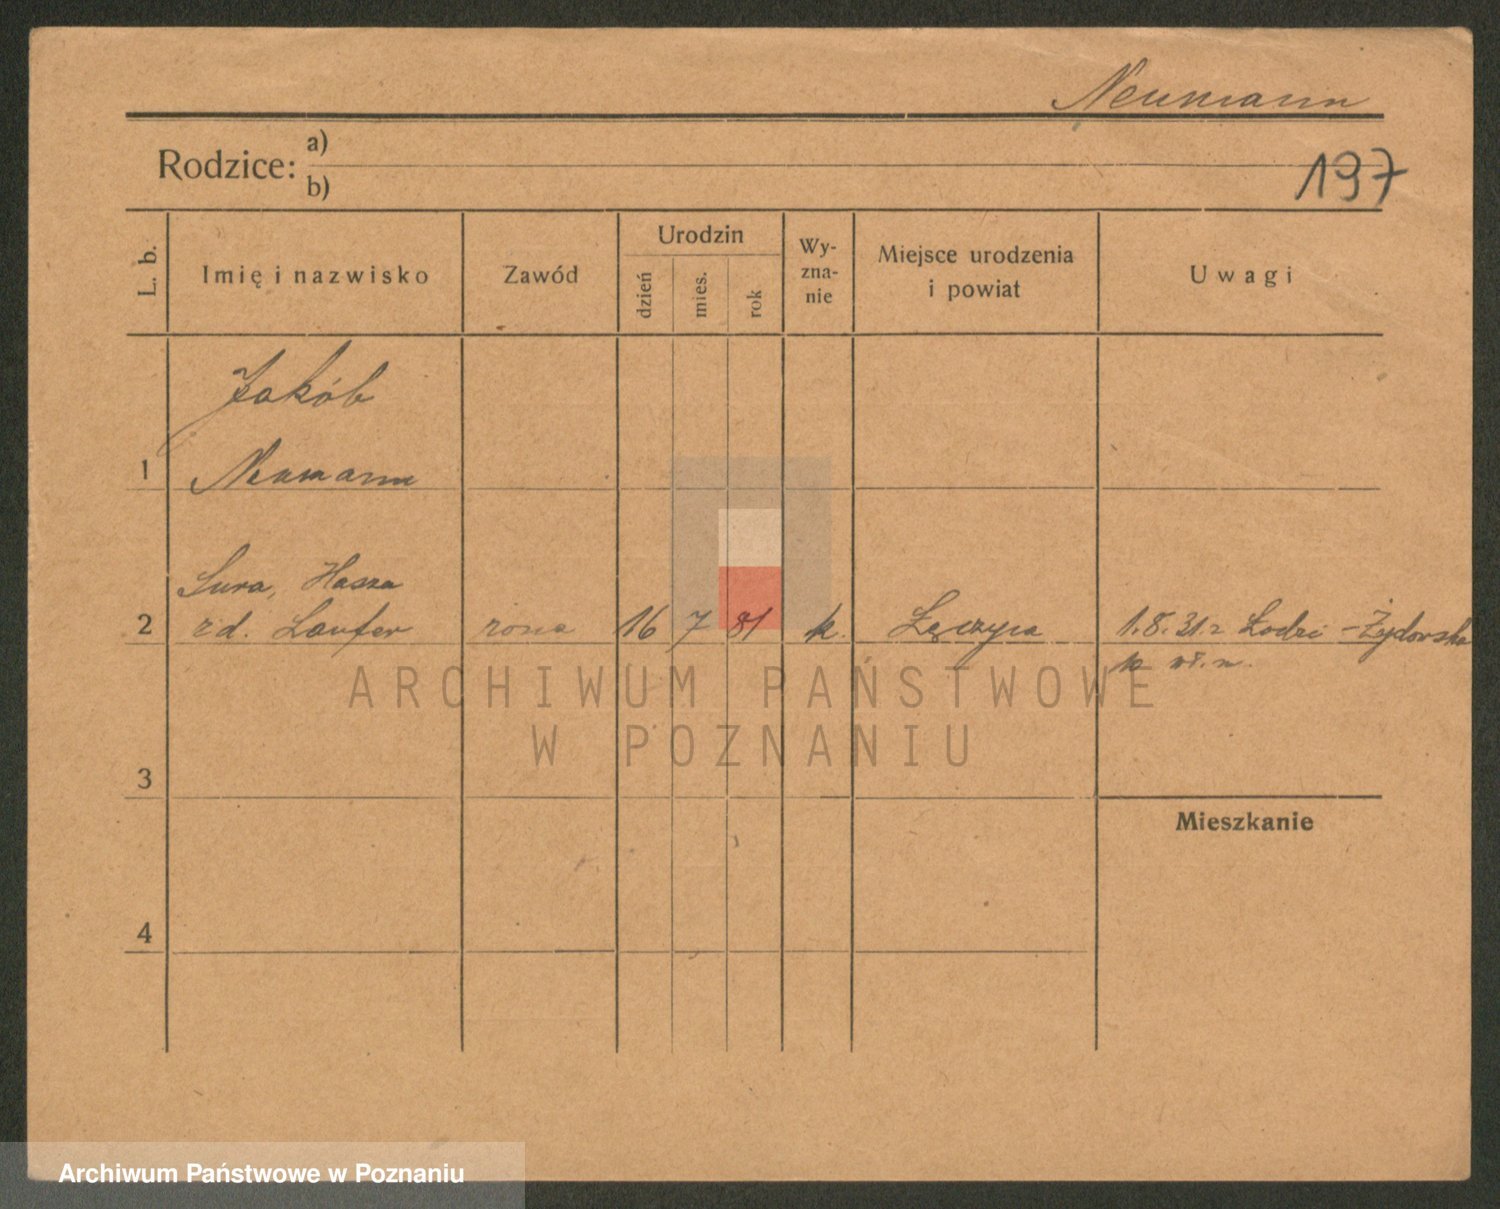 Neumann
197
Rodzice: a)
b)
L. b.
Imię i nazwisko
Zawód
Urodzin
dzień
mies.
rok
Wy-
zna-
nie
Miejsce urodzenia
i powiat
Uwagi
Jakób
1 Neumann
Sura, Hasza
2 zd. Laufer żona 16 7 81 k. Łęczyca 1.8.31 z Łodzi – Żydowska
3
Mieszkanie
4
ARCHIWUM PAŃSTWOWE
W POZNANIU
Archiwum Państwowe w Poznaniu